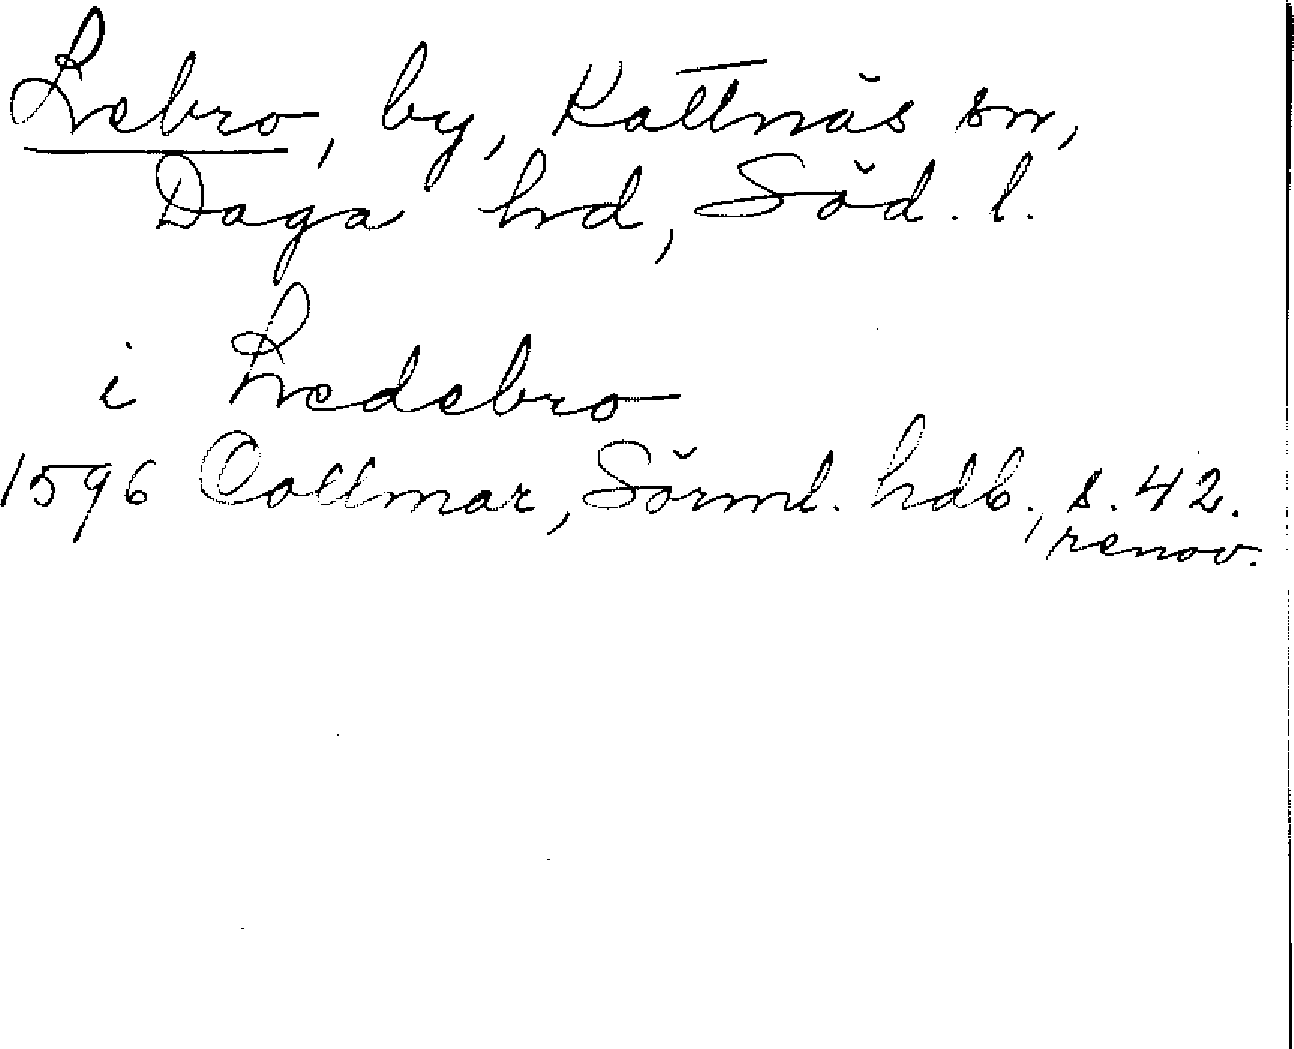 Lebro, by, Kattnäs sn,
Daga hd, Söd. l.
i Ledebro
1596 Collmar, Sörml. hdb., s. 42.
renov.